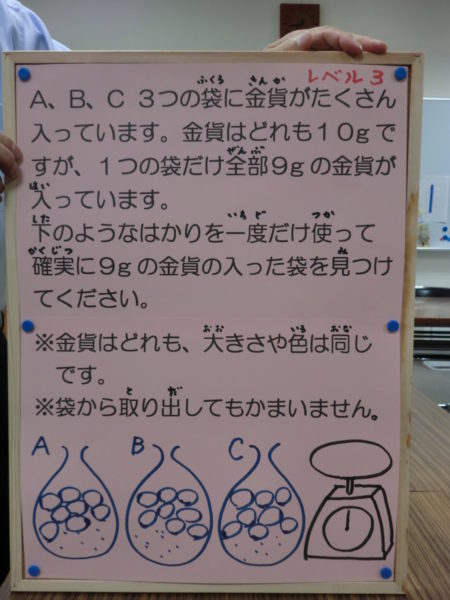 レベル3
A、B、C 3つの袋に金貨がたくさん
入っています。金貨はどれも10gで
すが、1つの袋だけ全部9gの金貨が
入っています。
下のようなはかりを一度だけ使って
確実に9gの金貨の入った袋を見つけ
てください。
※金貨はどれも、大きさや色は同じ
です。
※袋から取り出してもかまいません。
A B C